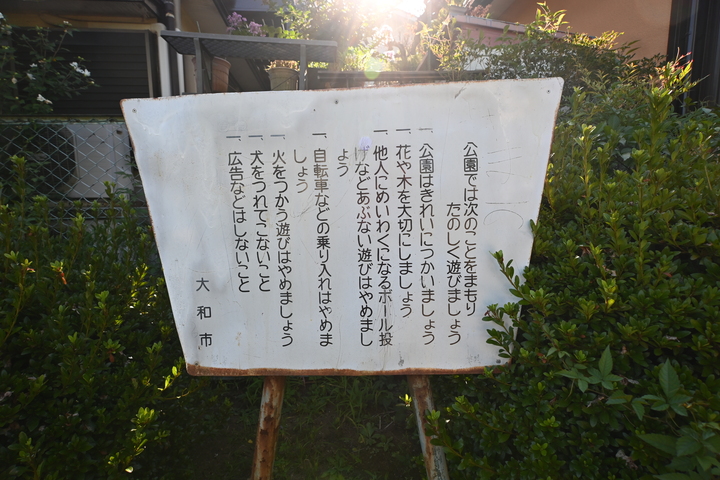 公園では次のことをまもり
たのしく遊びましょう
一、公園はきれいにつかいましょう
一、花や木を大切にしましょう
一、他人にめいわくになるボール投
げなどあぶない遊びはやめまし
ょう
一、自転車などの乗り入れはやめま
しょう
一、火をつかう遊びはやめましょう
一、犬をつれてこないこと
一、広告などはしないこと
大和市